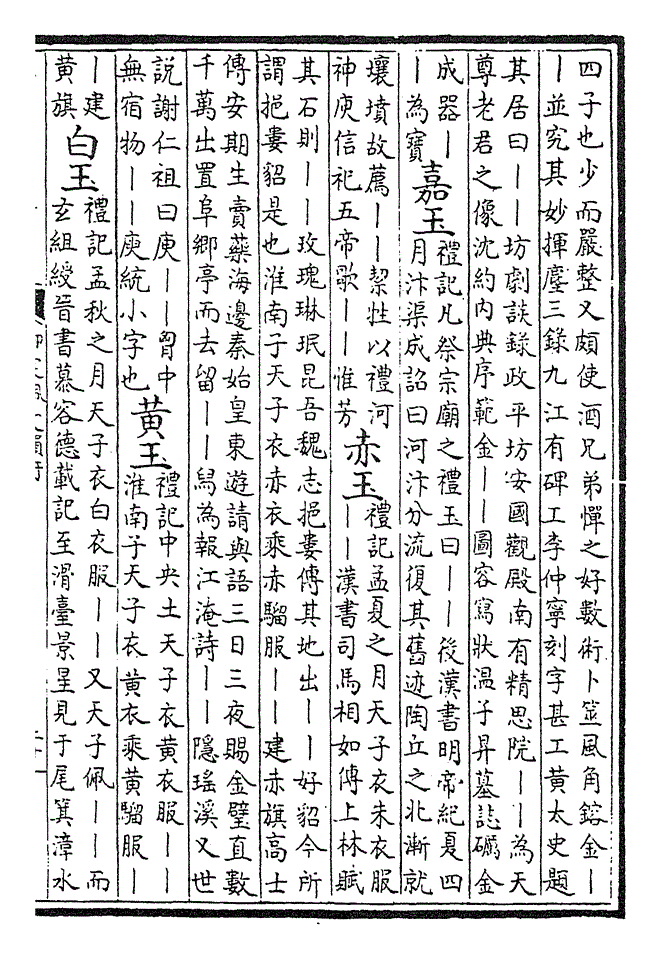 四子也少而嚴整又頗使酒兄弟憚之好數術卜筮風角鎔金丨
丨並究其妙揮麈三錄九江有碑工李仲寧刻字甚工黃太史題
其居曰丨丨坊劇談錄政平坊安國觀殿南有精思院丨丨為天
尊老君之像沈約內典序範金丨丨圖容寫狀溫子昇墓誌礪金
成器丨
丨為寶
嘉玉
禮記凡祭宗廟之禮玉曰丨丨後漢書明帝紀夏四
月汴渠成詔曰河汴分流復其舊迹陶丘之北漸就
壤墳故薦丨丨絜牲以禮河
神庾信祀五帝歌丨丨惟芳
赤玉
禮記孟夏之月天子衣朱衣服
丨丨漢書司馬相如傳上林賦
其石則丨丨玫瑰琳珉昆吾魏志挹婁傳其地出丨丨好貂今所
謂挹婁貂是也淮南子天子衣赤衣乘赤騮服丨丨建赤旗高士
傳安期生賣藥海邊秦始皇東遊請與語三日三夜賜金璧直數
千萬出置阜鄉亭而去留丨丨舄為報江淹詩丨丨隱瑤溪又世
說謝仁祖曰庾丨丨胷中
無宿物丨丨庾統小字也
黃玉
禮記中央土天子衣黃衣服丨丨
淮南子天子衣黃衣乘黃騮服丨
丨建
黃旗
白玉
禮記孟秋之月天子衣白衣服丨丨又天子佩丨丨而
玄組綬晉書慕容德載記至滑臺景星見于尾箕漳水